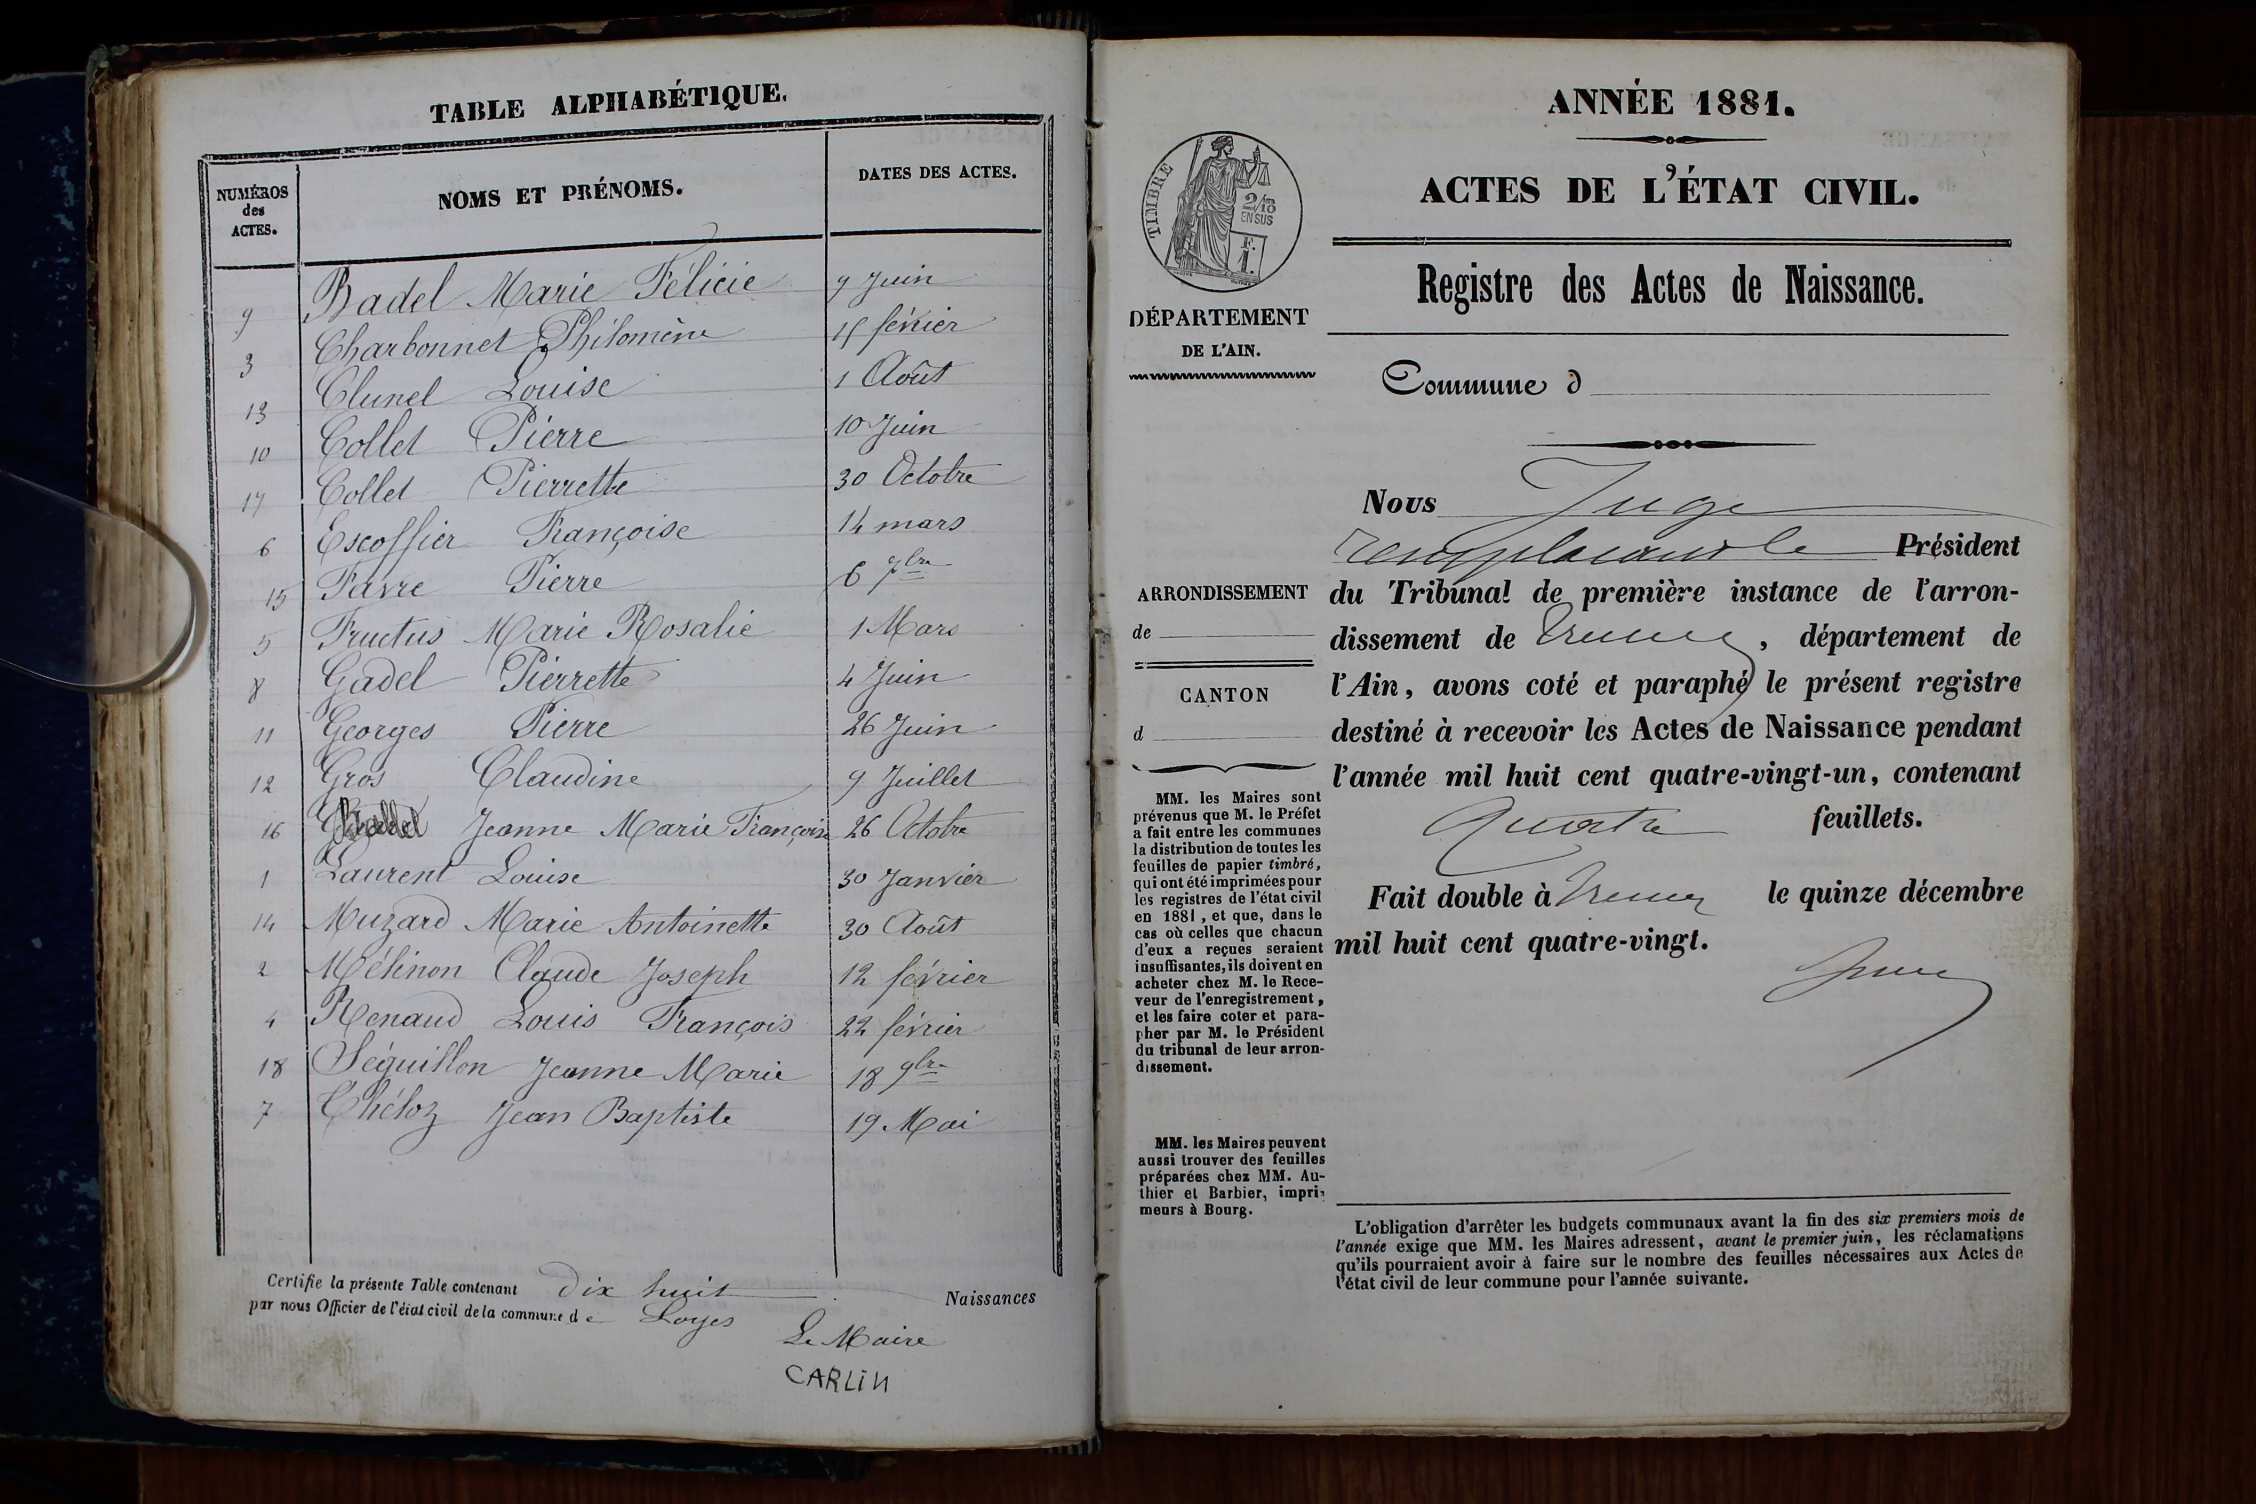 TABLE ALPHABÉTIQUE.
NUMÉROS des ACTES.
NOMS ET PRÉNOMS.
DATES DES ACTES.
9 Badel Marie Félicie 9 Juin
3 Charbonnet Philomène 15 février
13 Clunel Louise 1 Août
10 Collet Pierre 10 Juin
17 Collet Pierrette 30 Octobre
6 Escoffier Françoise 14 mars
15 Favre Pierre 6 7bre
5 Fructus Marie Rosalie 1 Mars
8 Gadel Pierrette 4 Juin
11 Georges Pierre 26 Juin
12 Gros Claudine 9 Juillet
16 Jeanne Marie Françoise 26 Octobre
1 Laurent Louise 30 Janvier
14 Muzard Marie Antoinette 30 Août
2 Mélinon Claude Joseph 12 février
4 Renaud Louis François 22 février
18 Séguillon Jeanne Marie 18 9bre
7 Théloz Jean Baptiste 19 Mai
Certifie la présente Table contenant dix huit Naissances
par nous Officier de l'état civil de la commune de Loyes
Le Maire
CARLIN
ANNÉE 1881.
ACTES DE L'ÉTAT CIVIL.
Registre des Actes de Naissance.
TIMBRE
2/10 EN SUS
F. 1.
DÉPARTEMENT
DE L'AIN.
Commune d
Nous Juge
remplaçant le Président
du Tribunal de première instance de l'arron-
dissement de Trévoux, département de
l'Ain, avons coté et paraphé le présent registre
destiné à recevoir les Actes de Naissance pendant
l'année mil huit cent quatre-vingt-un, contenant
Quatre feuillets.
Fait double à Trévoux le quinze décembre
mil huit cent quatre-vingt.
ARRONDISSEMENT
de
CANTON
d
MM. les Maires sont
prévenus que M. le Préfet
a fait entre les communes
la distribution de toutes les
feuilles de papier timbré,
qui ont été imprimées pour
les registres de l'état civil
en 1881, et que, dans le
cas où celles que chacun
d'eux a reçues seraient
insuffisantes, ils doivent en
acheter chez M. le Rece-
veur de l'enregistrement,
et les faire coter et para-
pher par M. le Président
du tribunal de leur arron-
dissement.
MM. les Maires peuvent
aussi trouver des feuilles
préparées chez MM. Au-
thier et Barbier, impri-
meurs à Bourg.
L'obligation d'arrêter les budgets communaux avant la fin des six premiers mois de
l'année exige que MM. les Maires adressent, avant le premier juin, les réclamations
qu'ils pourraient avoir à faire sur le nombre des feuilles nécessaires aux Actes de
l'état civil de leur commune pour l'année suivante.